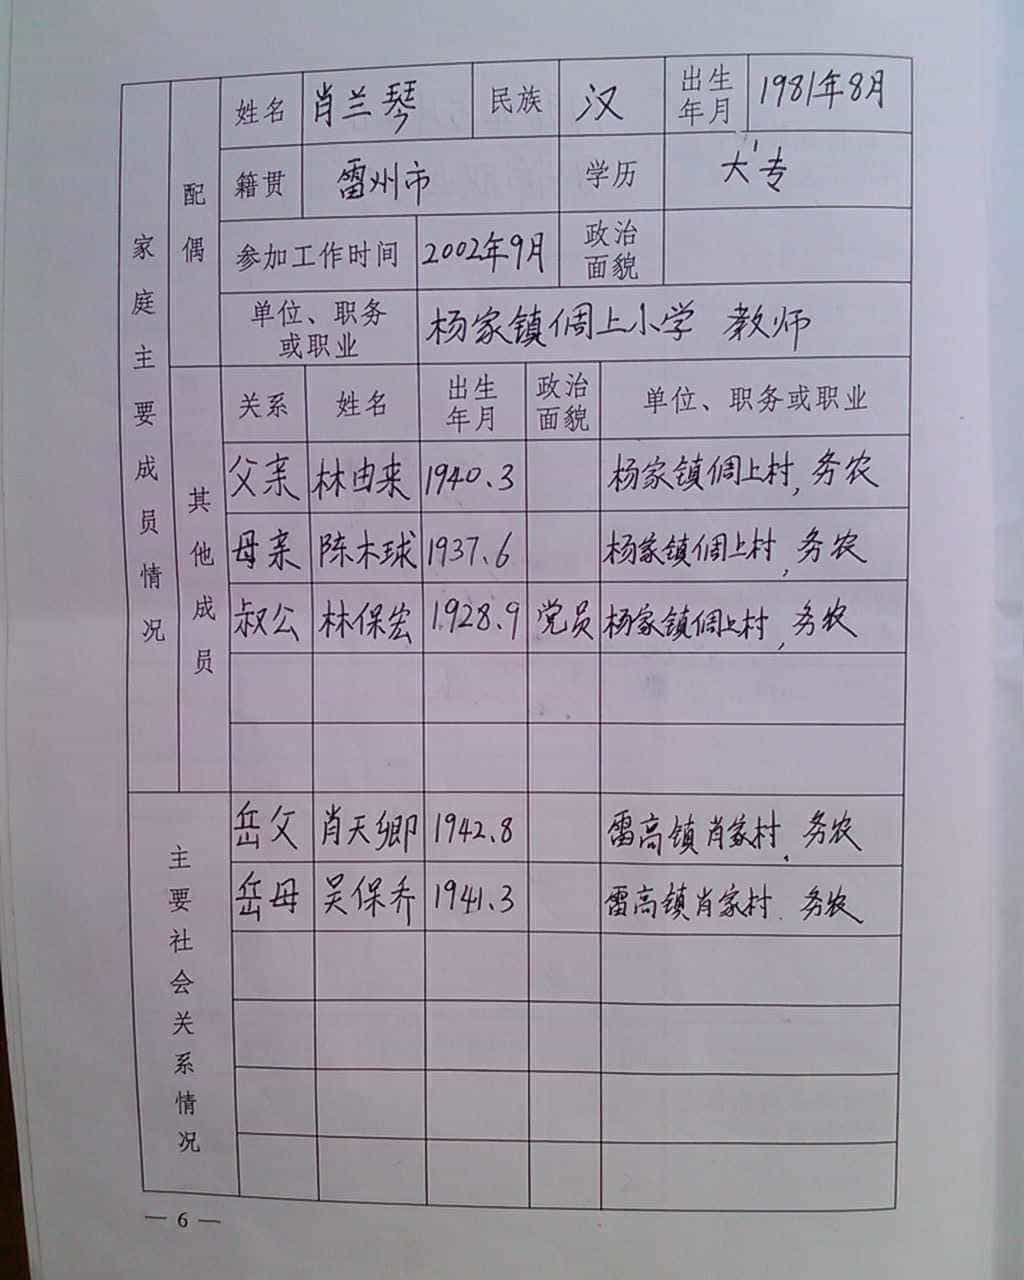 家庭主要成员情况
配偶
姓名 肖兰琴 民族 汉 出生年月 1981年8月
籍贯 雷州市 学历 大专
参加工作时间 2002年9月 政治面貌
单位、职务或职业 杨家镇倜上小学 教师
其他成员
关系 姓名 出生年月 政治面貌 单位、职务或职业
父亲 林由来 1940.3 杨家镇倜上村,务农
母亲 陈木球 1937.6 杨家镇倜上村,务农
叔公 林保宏 1928.9 党员 杨家镇倜上村,务农
主要社会关系情况
岳父 肖天卿 1942.8 雷高镇肖家村.务农
岳母 吴保乔 1941.3 雷高镇肖家村.务农
— 6 —